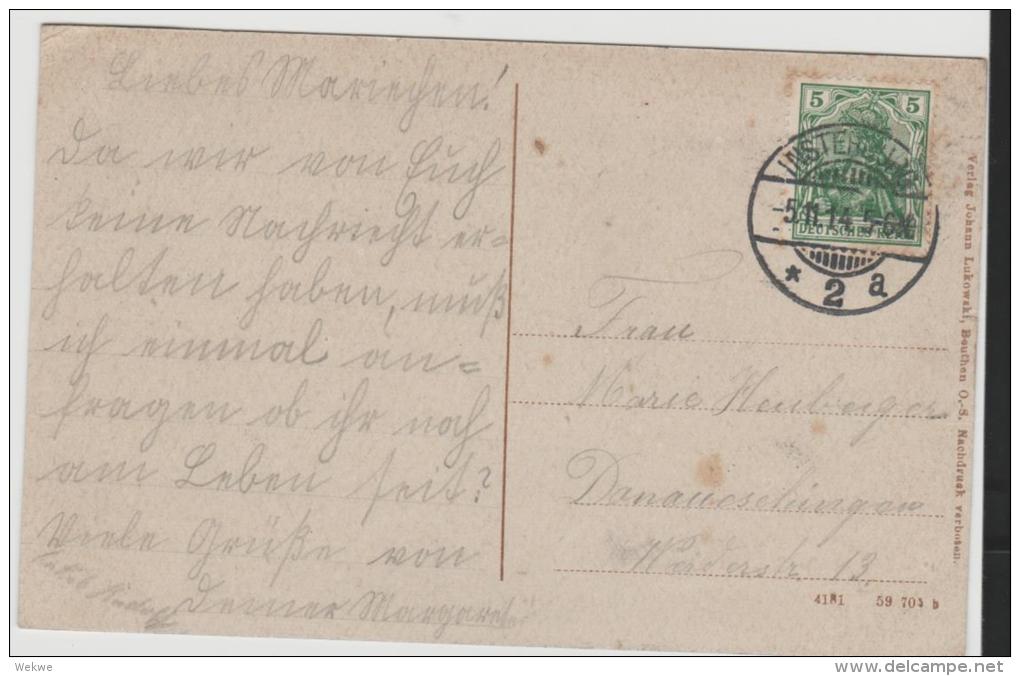 Liebes Mariechen!
Da wir von Euch
keine Nachricht er=
halten haben, muß
ich einmal an=
fragen ob ihr noch
am Leben seit?
Viele Grüße von
Deiner Margarete
5 5
DEUTSCHES REICH
INSTERBURG
-5.11.14.5-6N.
* 2 a
Frau
Marie Heuberger
Donaueschingen
13
Verlag Johann Lukowski, Beuthen O.-S. Nachdruck verboten.
4181 59 704 b
Wekwe
www.delcampe.net